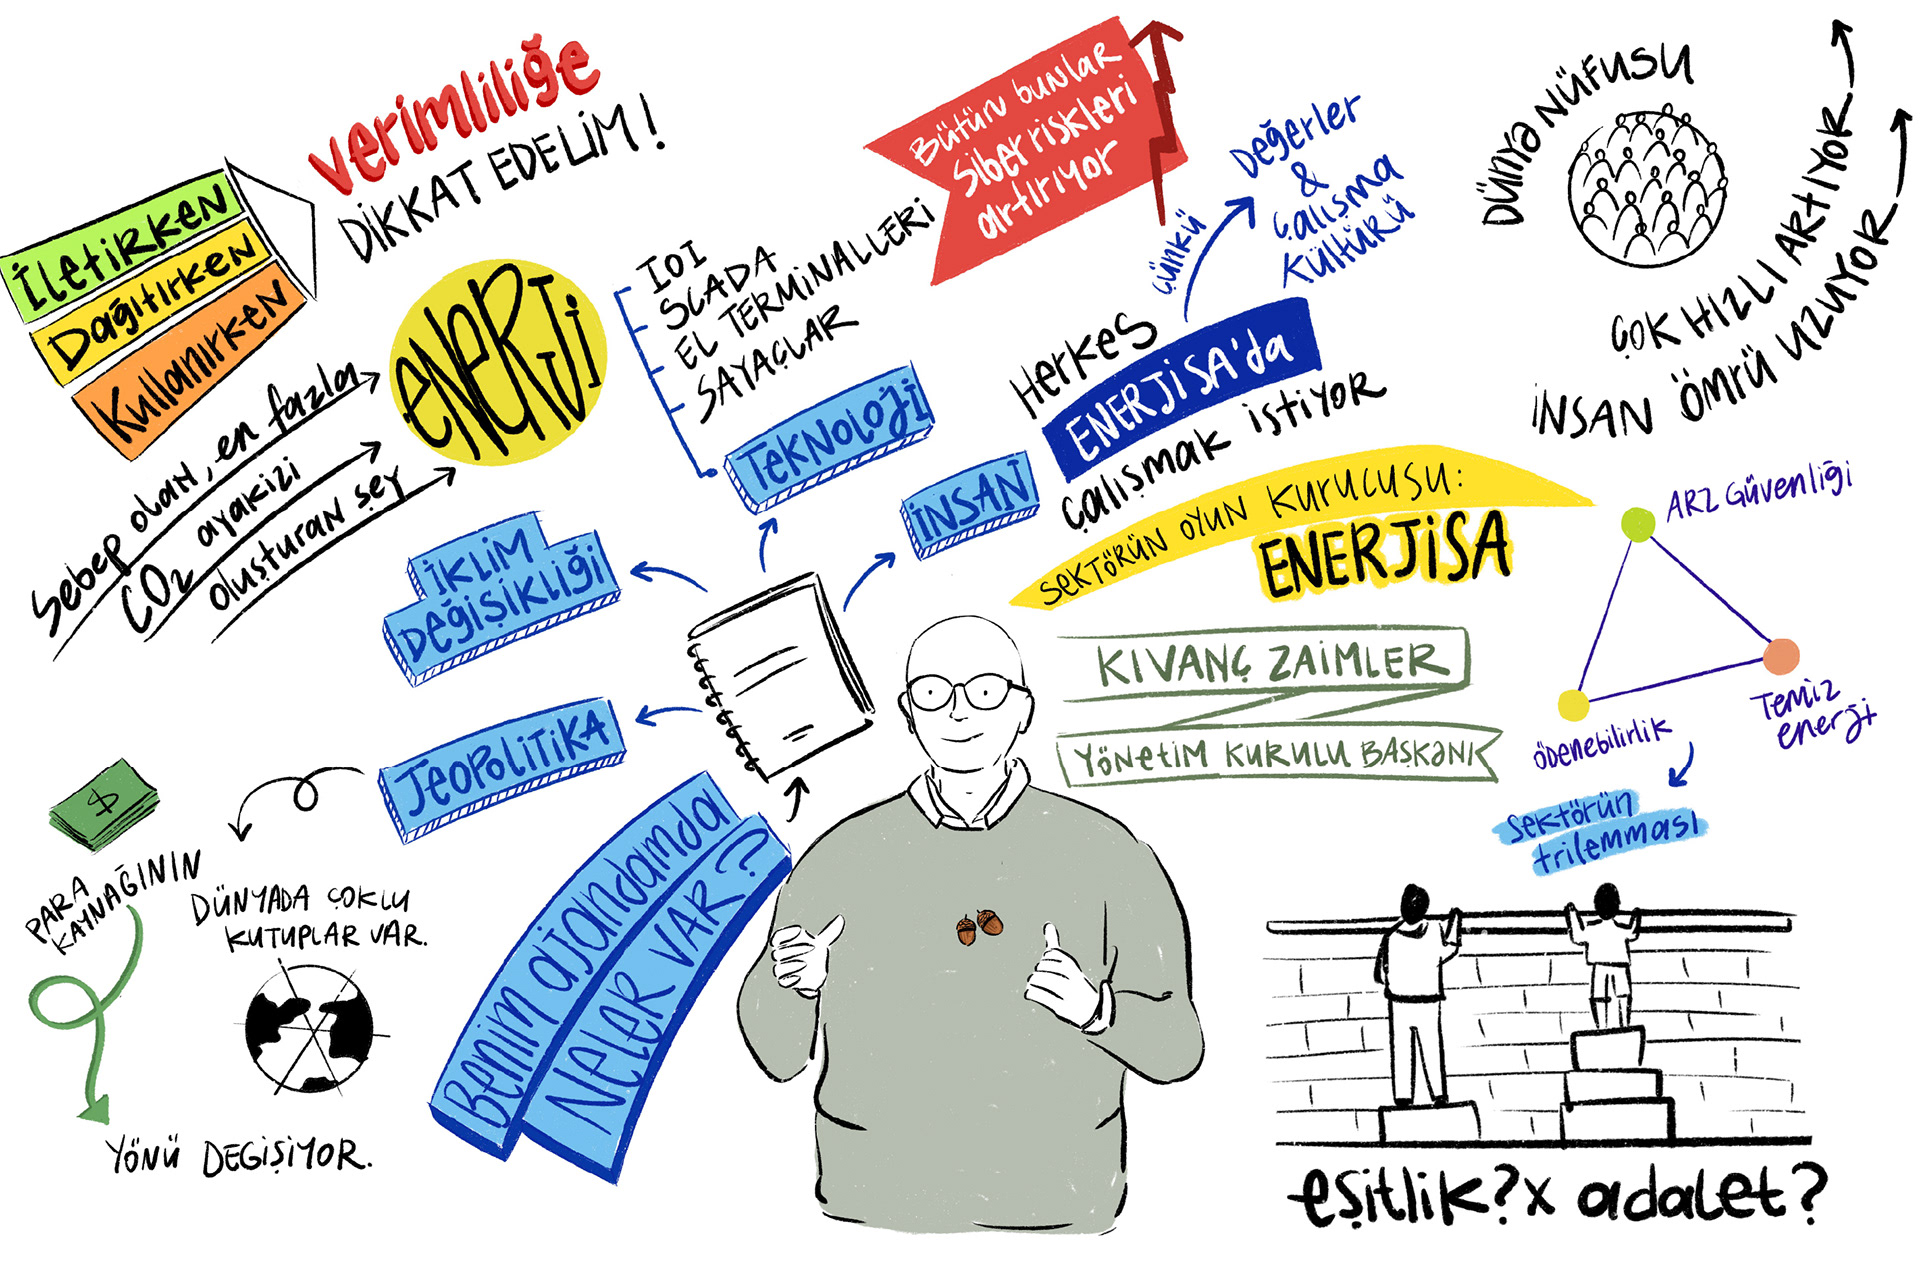 verimliliğe
DİKKAT EDELİM!
İletirken
Dağıtırken
Kullanırken
Sebep olan, en fazla
CO2 ayakizi
oluşturan şey
ENERJİ
IOI
SCADA
EL TERMİNALLERİ
SAYAÇLAR
TEKNOLOJİ
Bütün bunlar
Siber riskleri
artırıyor
Herkes
ENERJİSA'da
çalışmak istiyor
çünkü
Değerler
&
çalışma
kültürü
DÜNYA NÜFUSU
ÇOK HIZLI ARTIYOR
İNSAN ÖMRÜ UZUYOR
İNSAN
İKLİM
DEĞİŞİKLİĞİ
JEOPOLİTİKA
SEKTÖRÜN OYUN KURUCUSU:
ENERJİSA
KIVANÇ ZAİMLER
YÖNETİM KURULU BAŞKANI
ARZ GÜVENLİĞİ
TEMİZ
enerji
ödenebilirlik
Sektörün
trilemması
PARA
KAYNAĞININ
YÖNÜ DEGİŞİYOR.
DÜNYADA ÇOKLU
KUTUPLAR VAR.
Benim ajandamda
NELER VAR?
eşitlik? x adalet?